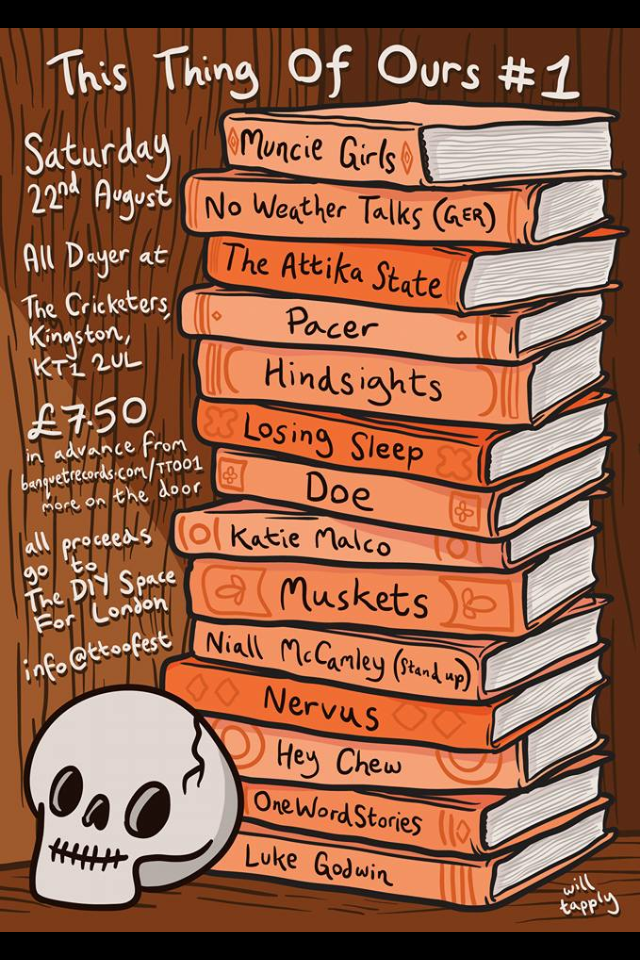 This Thing Of Ours #1
Saturday
22nd August
All Dayer at
The Cricketers,
Kingston,
KT1 2UL
£7.50
in advance from
banquetrecords.com/TTOO1
more on the door
all proceeds
go to
The DIY Space
For London
info@ttoofest
Muncie Girls
No Weather Talks (GER)
The Attika State
Pacer
Hindsights
Losing Sleep
Doe
Katie Malco
Muskets
Niall McCamley (Stand up)
Nervus
Hey Chew
OneWordStories
Luke Godwin
will
tapply